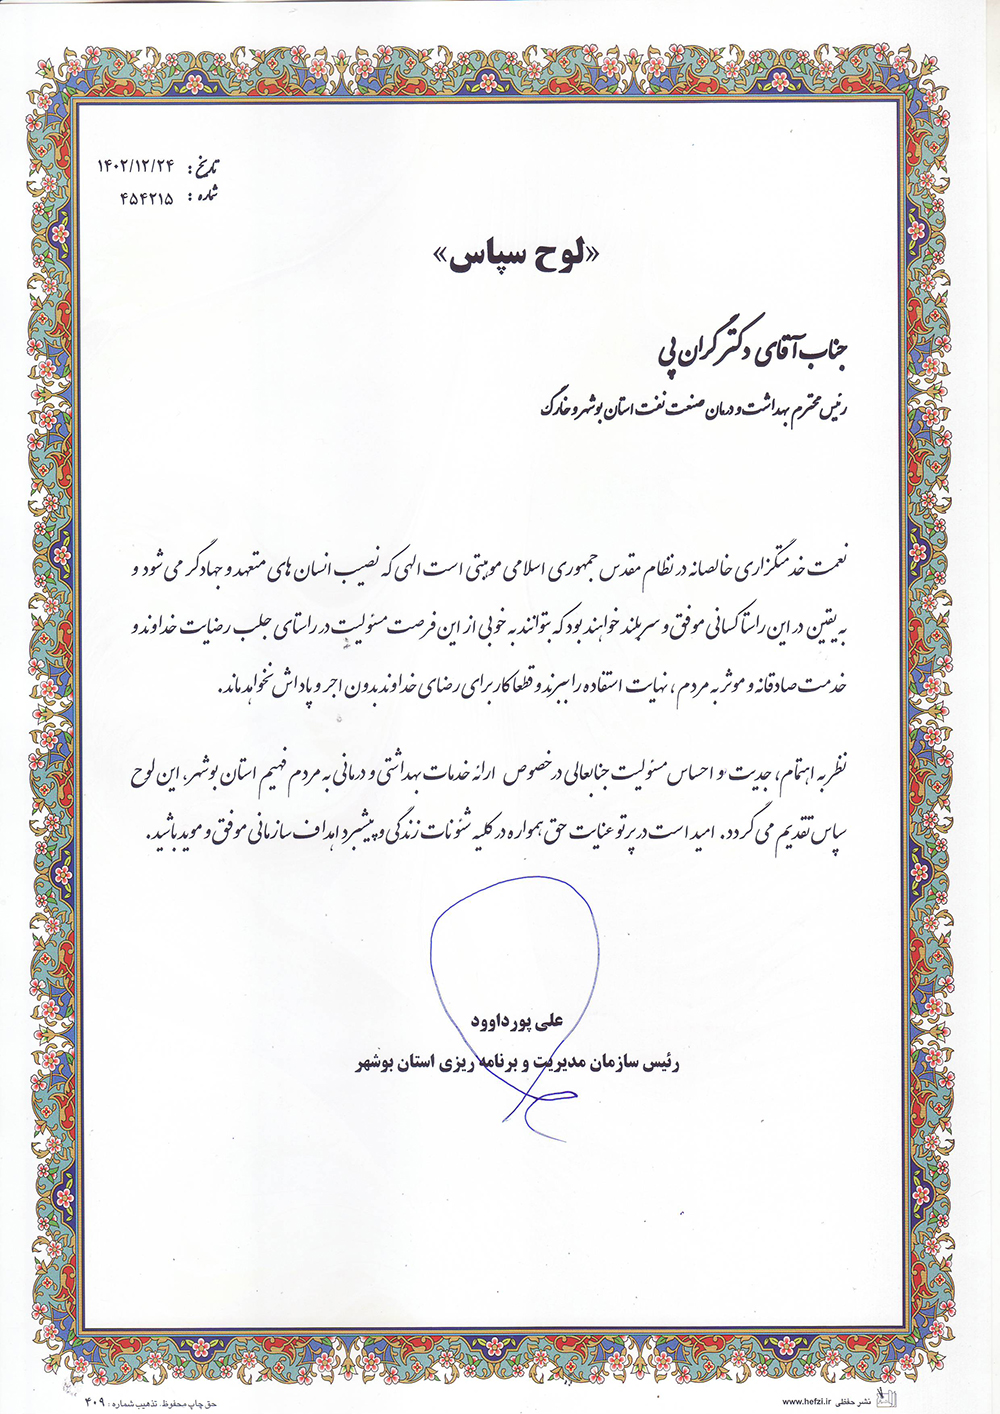 تاریخ : ۱۴۰۲/۱۲/۲۴
شماره : ۴۵۴۲۱۵
«لوح سپاس»
جناب آقای دکتر گران پی
رئیس محترم بهداشت و درمان صنعت نفت استان بوشهر و خارگ
نعمت خدمتگزاری خالصانه در نظام مقدس جمهوری اسلامی موهبتی است الهی که نصیب انسان های متعهد و جهادگر می شود و
به یقین در این راستا کسانی موفق و سربلند خواهند بود که بتوانند به خوبی از این فرصت مسئولیت در راستای جلب رضایت خداوند و
خدمت صادقانه و موثر به مردم ، نهایت استفاده را ببرند و قطعا کار برای رضای خداوند بدون اجر و پاداش نخواهد ماند.
نظر به اهتمام، جدیت و احساس مسئولیت جنابعالی در خصوص ارائه خدمات بهداشتی و درمانی به مردم فهیم استان بوشهر، این لوح
سپاس تقدیم می گردد. امید است در پرتو عنایت حق همواره در کلیه شئونات زندگی و پیشبرد اهداف سازمانی موفق و موید باشید.
علی پورداوود
رئیس سازمان مدیریت و برنامه ریزی استان بوشهر
نشر حفظی www.hefzi.ir
حق چاپ محفوظ. تذهیب شماره : ۴۰۹